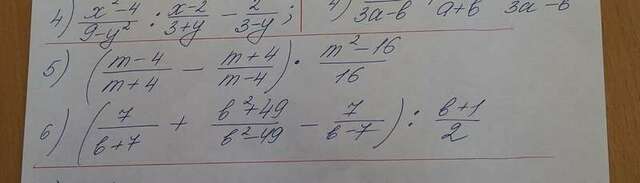 4) x²-4/9-y² : x-2/3+y - 2/3-y ; 4) 3a-b a+b 3a-b
5) (m-4/m+4 - m+4/m-4) · m²-16/16
6) (7/b+7 + b²+49/b²-49 - 7/b-7) : b+1/2